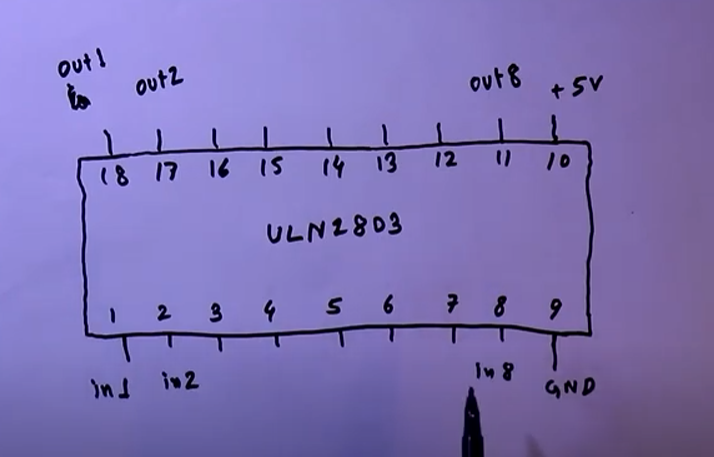 out1
out2
out8
+5V
18 17 16 15 14 13 12 11 10
ULN2803
1 2 3 4 5 6 7 8 9
in1
in2
in8
GND